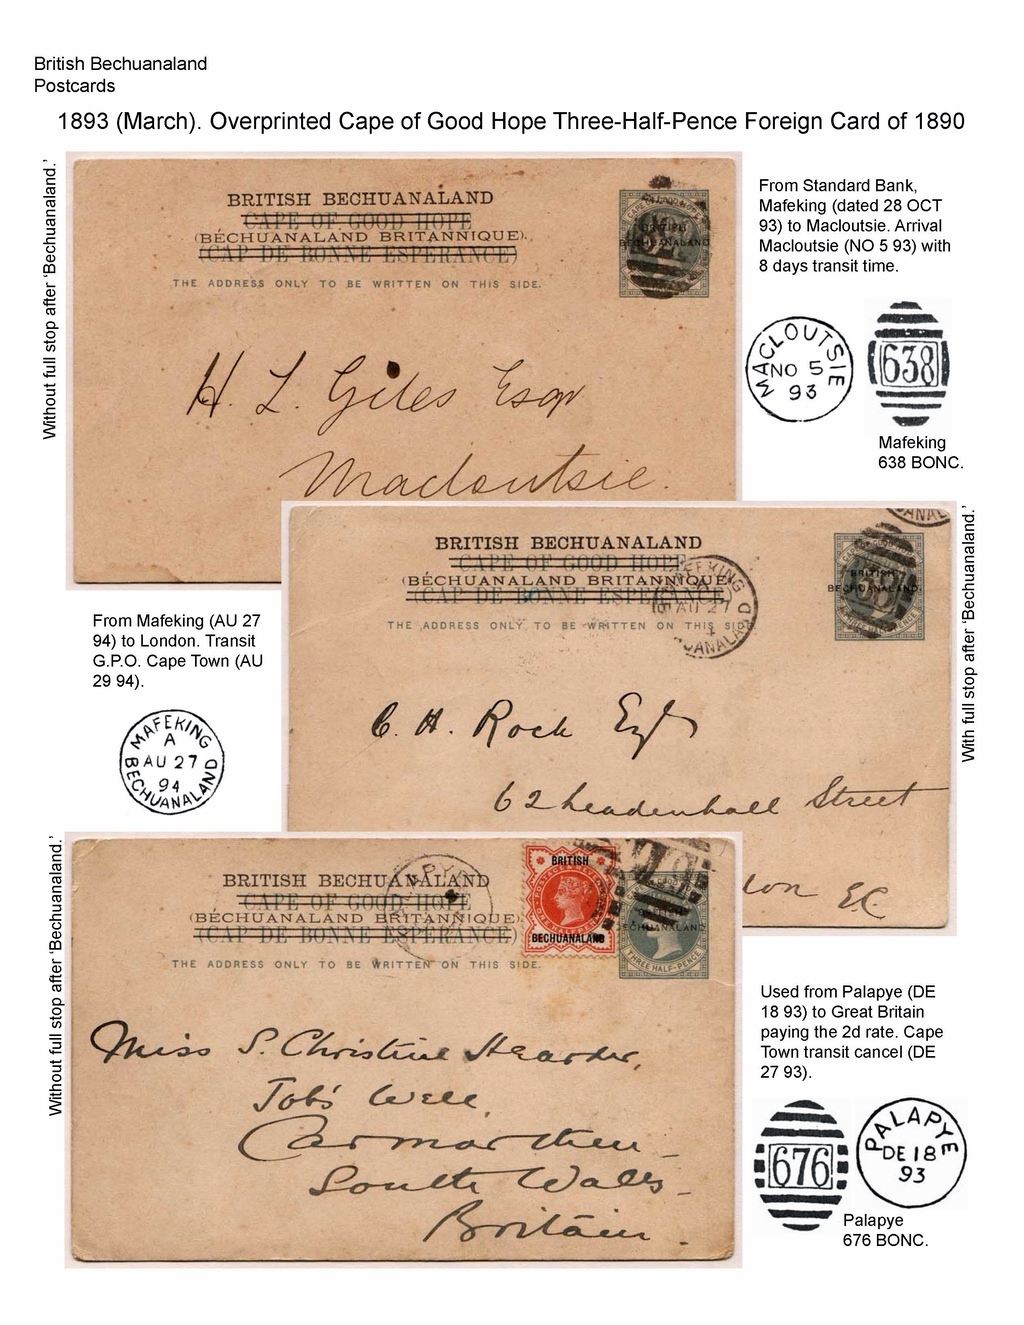 British Bechuanaland
Postcards
1893 (March). Overprinted Cape of Good Hope Three-Half-Pence Foreign Card of 1890
Without full stop after 'Bechuanaland.'
BRITISH BECHUANALAND
CAPE OF GOOD HOPE
(BÉCHUANALAND BRITANNIQUE).
(CAP DE BONNE ESPERANCE)
THE ADDRESS ONLY TO BE WRITTEN ON THIS SIDE.
BRITISH
BECHUANALAND
H. L. Giles Esqr
Macloutsie.
From Standard Bank,
Mafeking (dated 28 OCT
93) to Macloutsie. Arrival
Macloutsie (NO 5 93) with
8 days transit time.
MACLOUTSIE
NO 5
93
638
Mafeking
638 BONC.
BRITISH BECHUANALAND
CAPE OF GOOD HOPE
(BÉCHUANALAND BRITANNIQUE)
(CAP DE BONNE ESPERANCE)
THE ADDRESS ONLY TO BE WRITTEN ON THIS SIDE
MAFEKING
AU 27
BRITISH
BECHUANALAND.
THREE HALF-PENCE
C. H. Rock Esqr
62 Leadenhall Street
don E.C.
With full stop after 'Bechuanaland.'
From Mafeking (AU 27
94) to London. Transit
G.P.O. Cape Town (AU
29 94).
MAFEKING
A
AU 27
94
BECHUANALAND
Without full stop after 'Bechuanaland.'
BRITISH BECHUANALAND
CAPE OF GOOD HOPE
(BÉCHUANALAND BRITANNIQUE)
(CAP DE BONNE ESPERANCE)
THE ADDRESS ONLY TO BE WRITTEN ON THIS SIDE.
BRITISH
BECHUANALAND
BECHUANALAND
THREE HALF-PENCE
Miss S. Christine Hearder,
Job's Well,
Carmarthen
South Wales
Britain.
Used from Palapye (DE
18 93) to Great Britain
paying the 2d rate. Cape
Town transit cancel (DE
27 93).
676
PALAPYE
DE 18
93
Palapye
676 BONC.